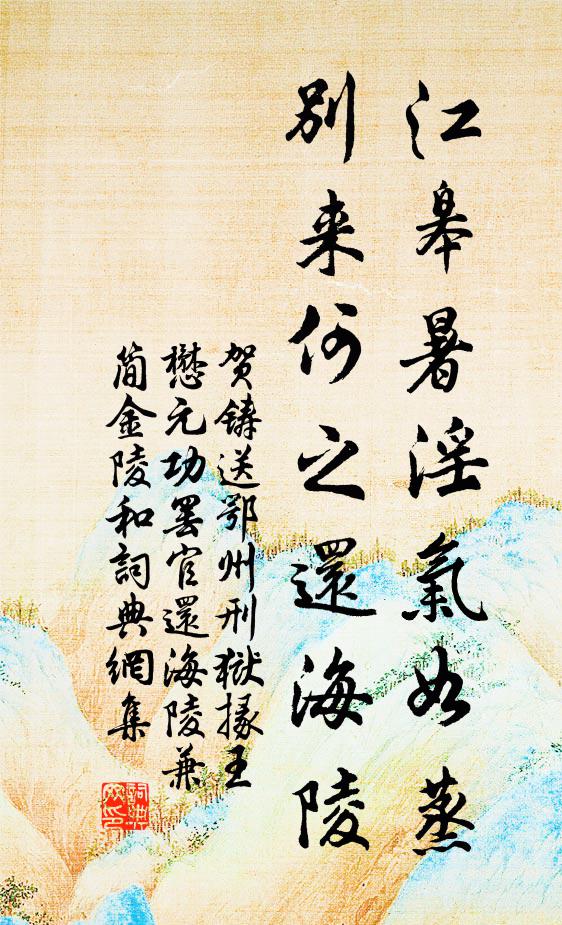 江皋暑淫氣如蒸
別来何之還海陵
贺鑄送鄂州刑獄掾王
懋元功罢官還海陵兼
简金陵和詞典網集